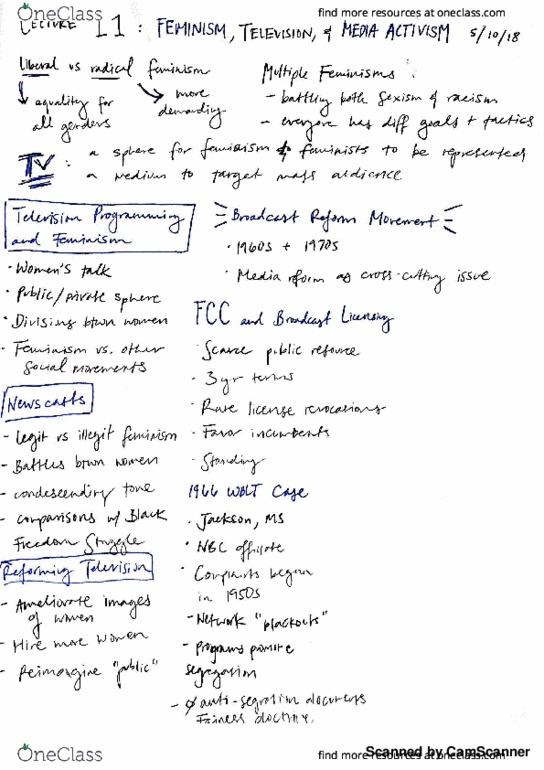 OneClass
find more resources at oneclass.com
LECTURE 11 : FEMINISM, TELEVISION, & MEDIA ACTIVISM 5/10/18
liberal vs radical feminism
equality for all genders
more demanding
Multiple Feminisms :
- battling both sexism & racism
- everyone has diff goals + tactics
TV : a sphere for feminism & feminists to be represented
a medium to target mass audience
Television Programming
and Feminism
· Women's talk
· Public/private sphere
· Divisions btwn women
· Feminism vs. other
social movements
Newscasts
- legit vs illegit feminism
- Battles btwn women
- condescending tone
- comparisons w/ Black
Freedom Struggle
Reforming Television
- Ameliorate images
of women
- Hire more women
- Reimagine "public"
Broadcast Reform Movement
· 1960s + 1970s
· Media reform as cross-cutting issue
FCC and Broadcast Licensing
· Scarce public resource
· 3 yr terms
· Rare license revocations
· Favor incumbents
· Standing
1966 WBLT Case
· Jackson, MS
· NBC affiliate
· Complaints began
in 1950s
- Network "blackouts"
- programs promote
segregation
- anti-segration documents
Fairness doctrine
OneClass
find more resources at oneclass.com
Scanned by CamScanner